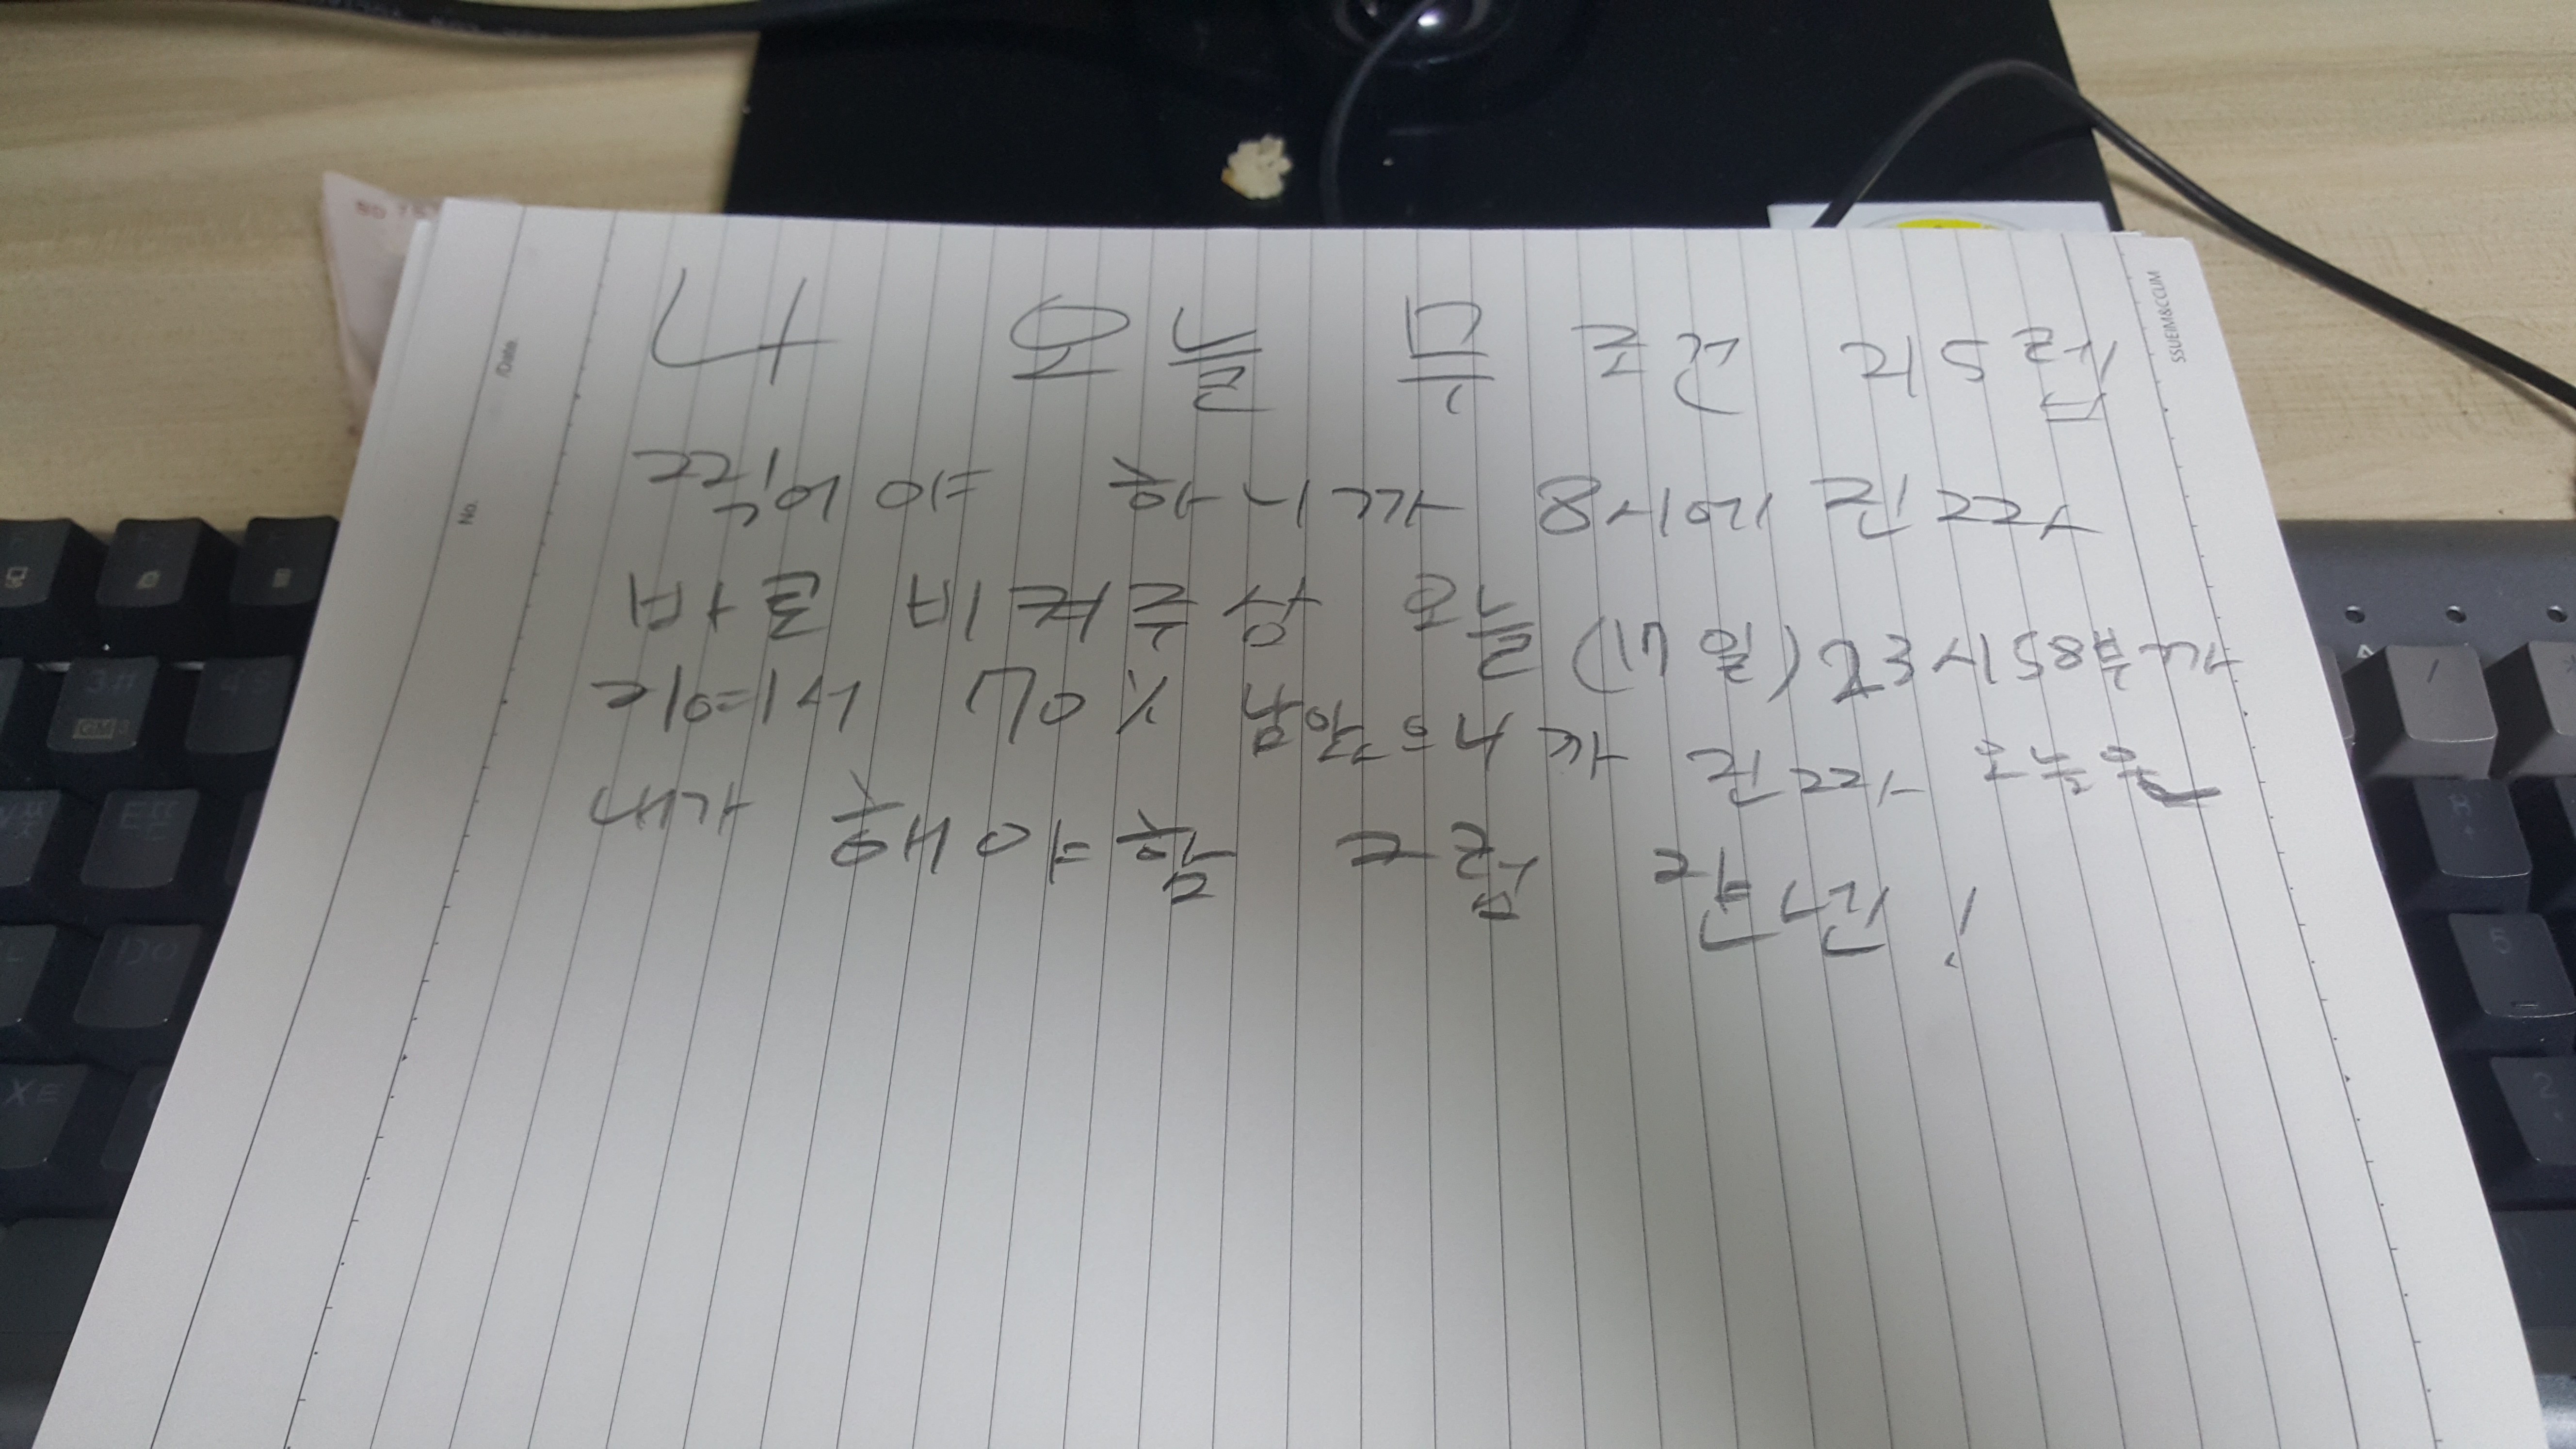 나 오늘 무조건 리5렙
찍어야 하니까 8시에 진짜
바로 비켜주삼 오늘 (17일) 23시58분까
지여서 70% 남았으니까 진짜 오늘은
내가 해야함 그럼 찬넨!
SSUEIM&CCLIM
/Date.
No.